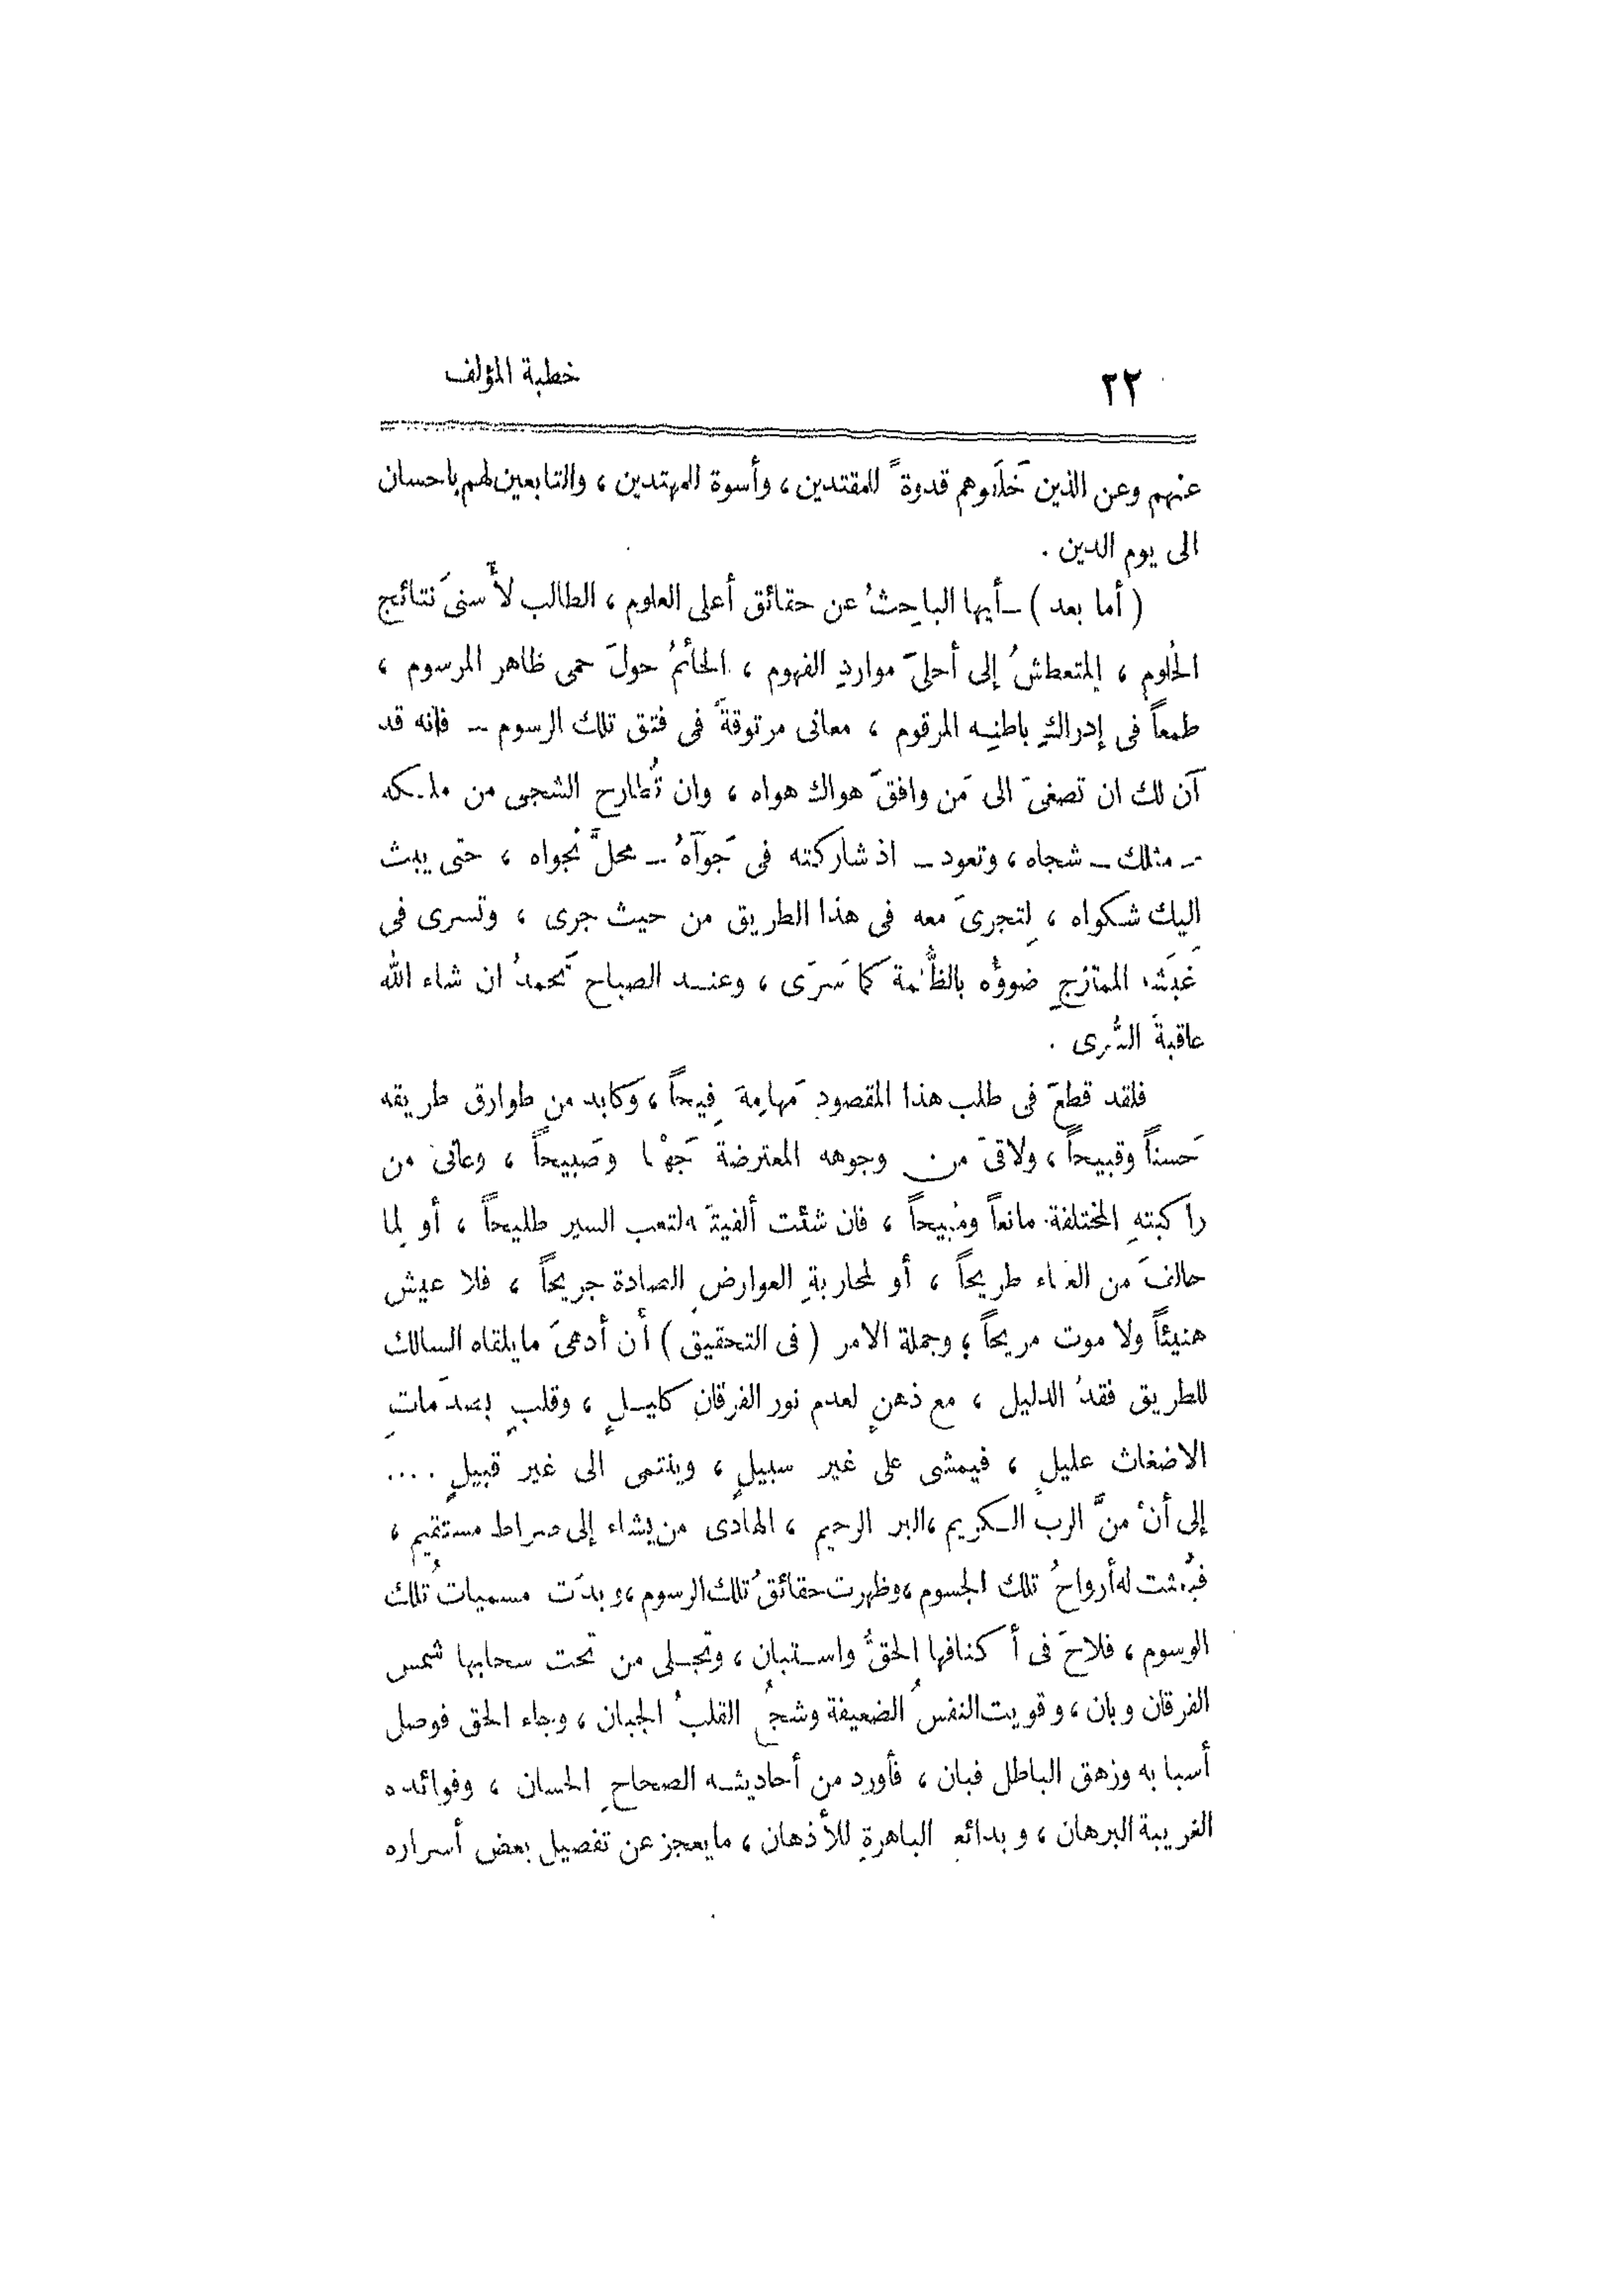 ٢٢
خطبة المؤلف
عنهم وعن الذين خَلَفوهم قدوةً للمقتدين ، وأسوة للمهتدين ، والتابعين لهم باحسان
الى يوم الدين .
( أما بعد ) ــ أيها الباحثُ عن حقائق أعلى العلوم ، الطالب لأَسنىَ نتائج
الحُلوم ، المتعطشُ إلى أحلىَ مواردِ الفهوم ، الحائمُ حولَ حمى ظاهر المرسوم ،
طمعاً فى إدراكِ باطنِـه المرقوم ، معانى مرتوقةً فى فتق تلك الرسوم ــ فانه قد
آن لك ان تصغىَ الى مَن وافقَ هواك هواه ، وان تُطارح الشجى من ملـكه
ــ مثلك ــ شجاه ، وتعود ــ اذ شاركته فى جَواهُ ــ محلَّ نجواه ، حتى يبث
إليك شكواه ، لِتجرىَ معه فى هذا الطريق من حيث جرى ، وتسرى فى
غَبَشِه الممتزجِ ضوؤُه بالظُّلمة كما سَرَى ، وعنـد الصباح تَحمدُ ان شاء الله
عاقبةَ السُّرى .
فلقد قطعَ فى طلب هذا المقصود مَهامِهَ فِيحاً ، وكابد من طوارق طريقه
حَسناً وقبيحاً ، ولاقىَ من وجوهه المعترضة جَهْما وصَبيحاً ، وعانىَ من
راكبتهِ المختلفة مانعاً ومُبيحاً ، فان شئت ألفيتَه لتعب السير طليحاً ، أو لِما
حالفَ من العَناء طريحاً ، أو لمحاربةِ العوارضِ الصادة جريحاً ، فلا عيش
هنيئاً ولا موت مريحاً ؛ وجملة الامر ( فى التحقيق ) أن أدهىَ مايلقاه السالك
للطريق فقدُ الدليل ، مع ذهنٍ لعدم نور الفرقانِ كليـلٍ ، وقلبٍ بصدَماتِ
الاضغاث عليلٍ ، فيمشى على غير سبيلٍ ، وينتمى الى غير قبيلٍ ....
إلى أنْ منَّ الرب الـكريم ، البر الرحيم ، الهادى من يشاء إلى صراط مستقيم ،
فبُعثت له أرواحُ تلك الجسوم ، وظهرت حقائقُ تلك الرسوم ، وبدَت مسمياتُ تلك
الوسوم ، فلاحَ فى أكنافها الحقُّ واسـتبان ، وتجـلى من تحت سحابها شمس
الفرقان وبان ، وقويت النفسُ الضعيفة وشجُع القلبُ الجبان ، وجاء الحق فوصل
أسبابه وزهق الباطل فبان ، فأورد من أحاديثـه الصحاحِ الحسان ، وفوائده
الغريبة البرهان ، وبدائعه الباهرةِ للأذهان ، مايعجز عن تفصيل بعض أسراره